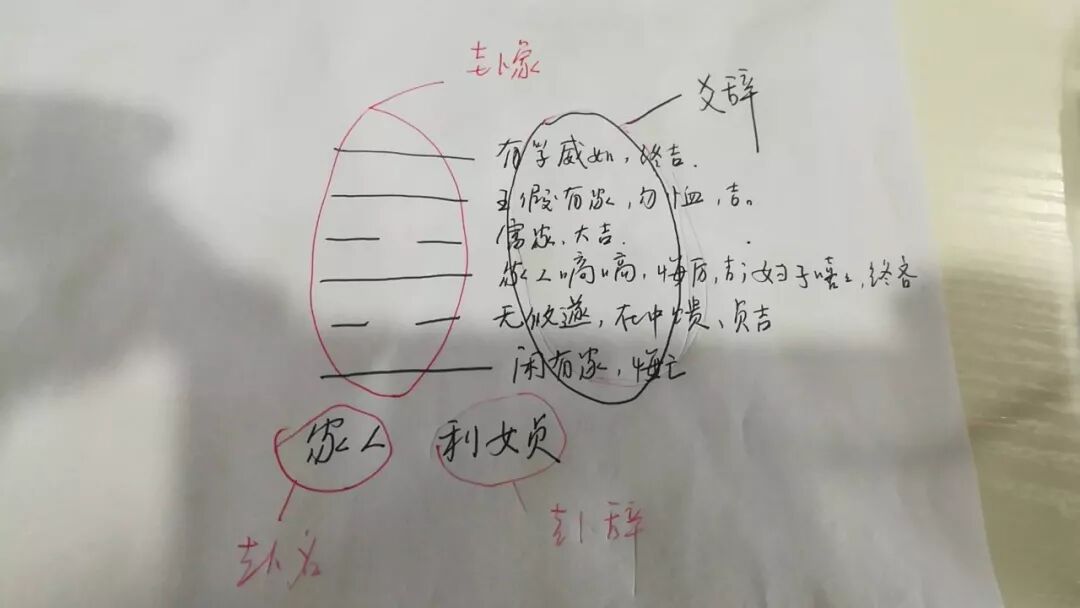 卦象
爻辞
有孚威如，终吉.
王假有家，勿恤，吉。
富家、大吉.
家人嗃嗃，悔厉，吉；妇子嘻嘻，终吝
无攸遂，在中馈、贞吉
闲有家，悔亡
家人 利女贞
卦名 卦辞